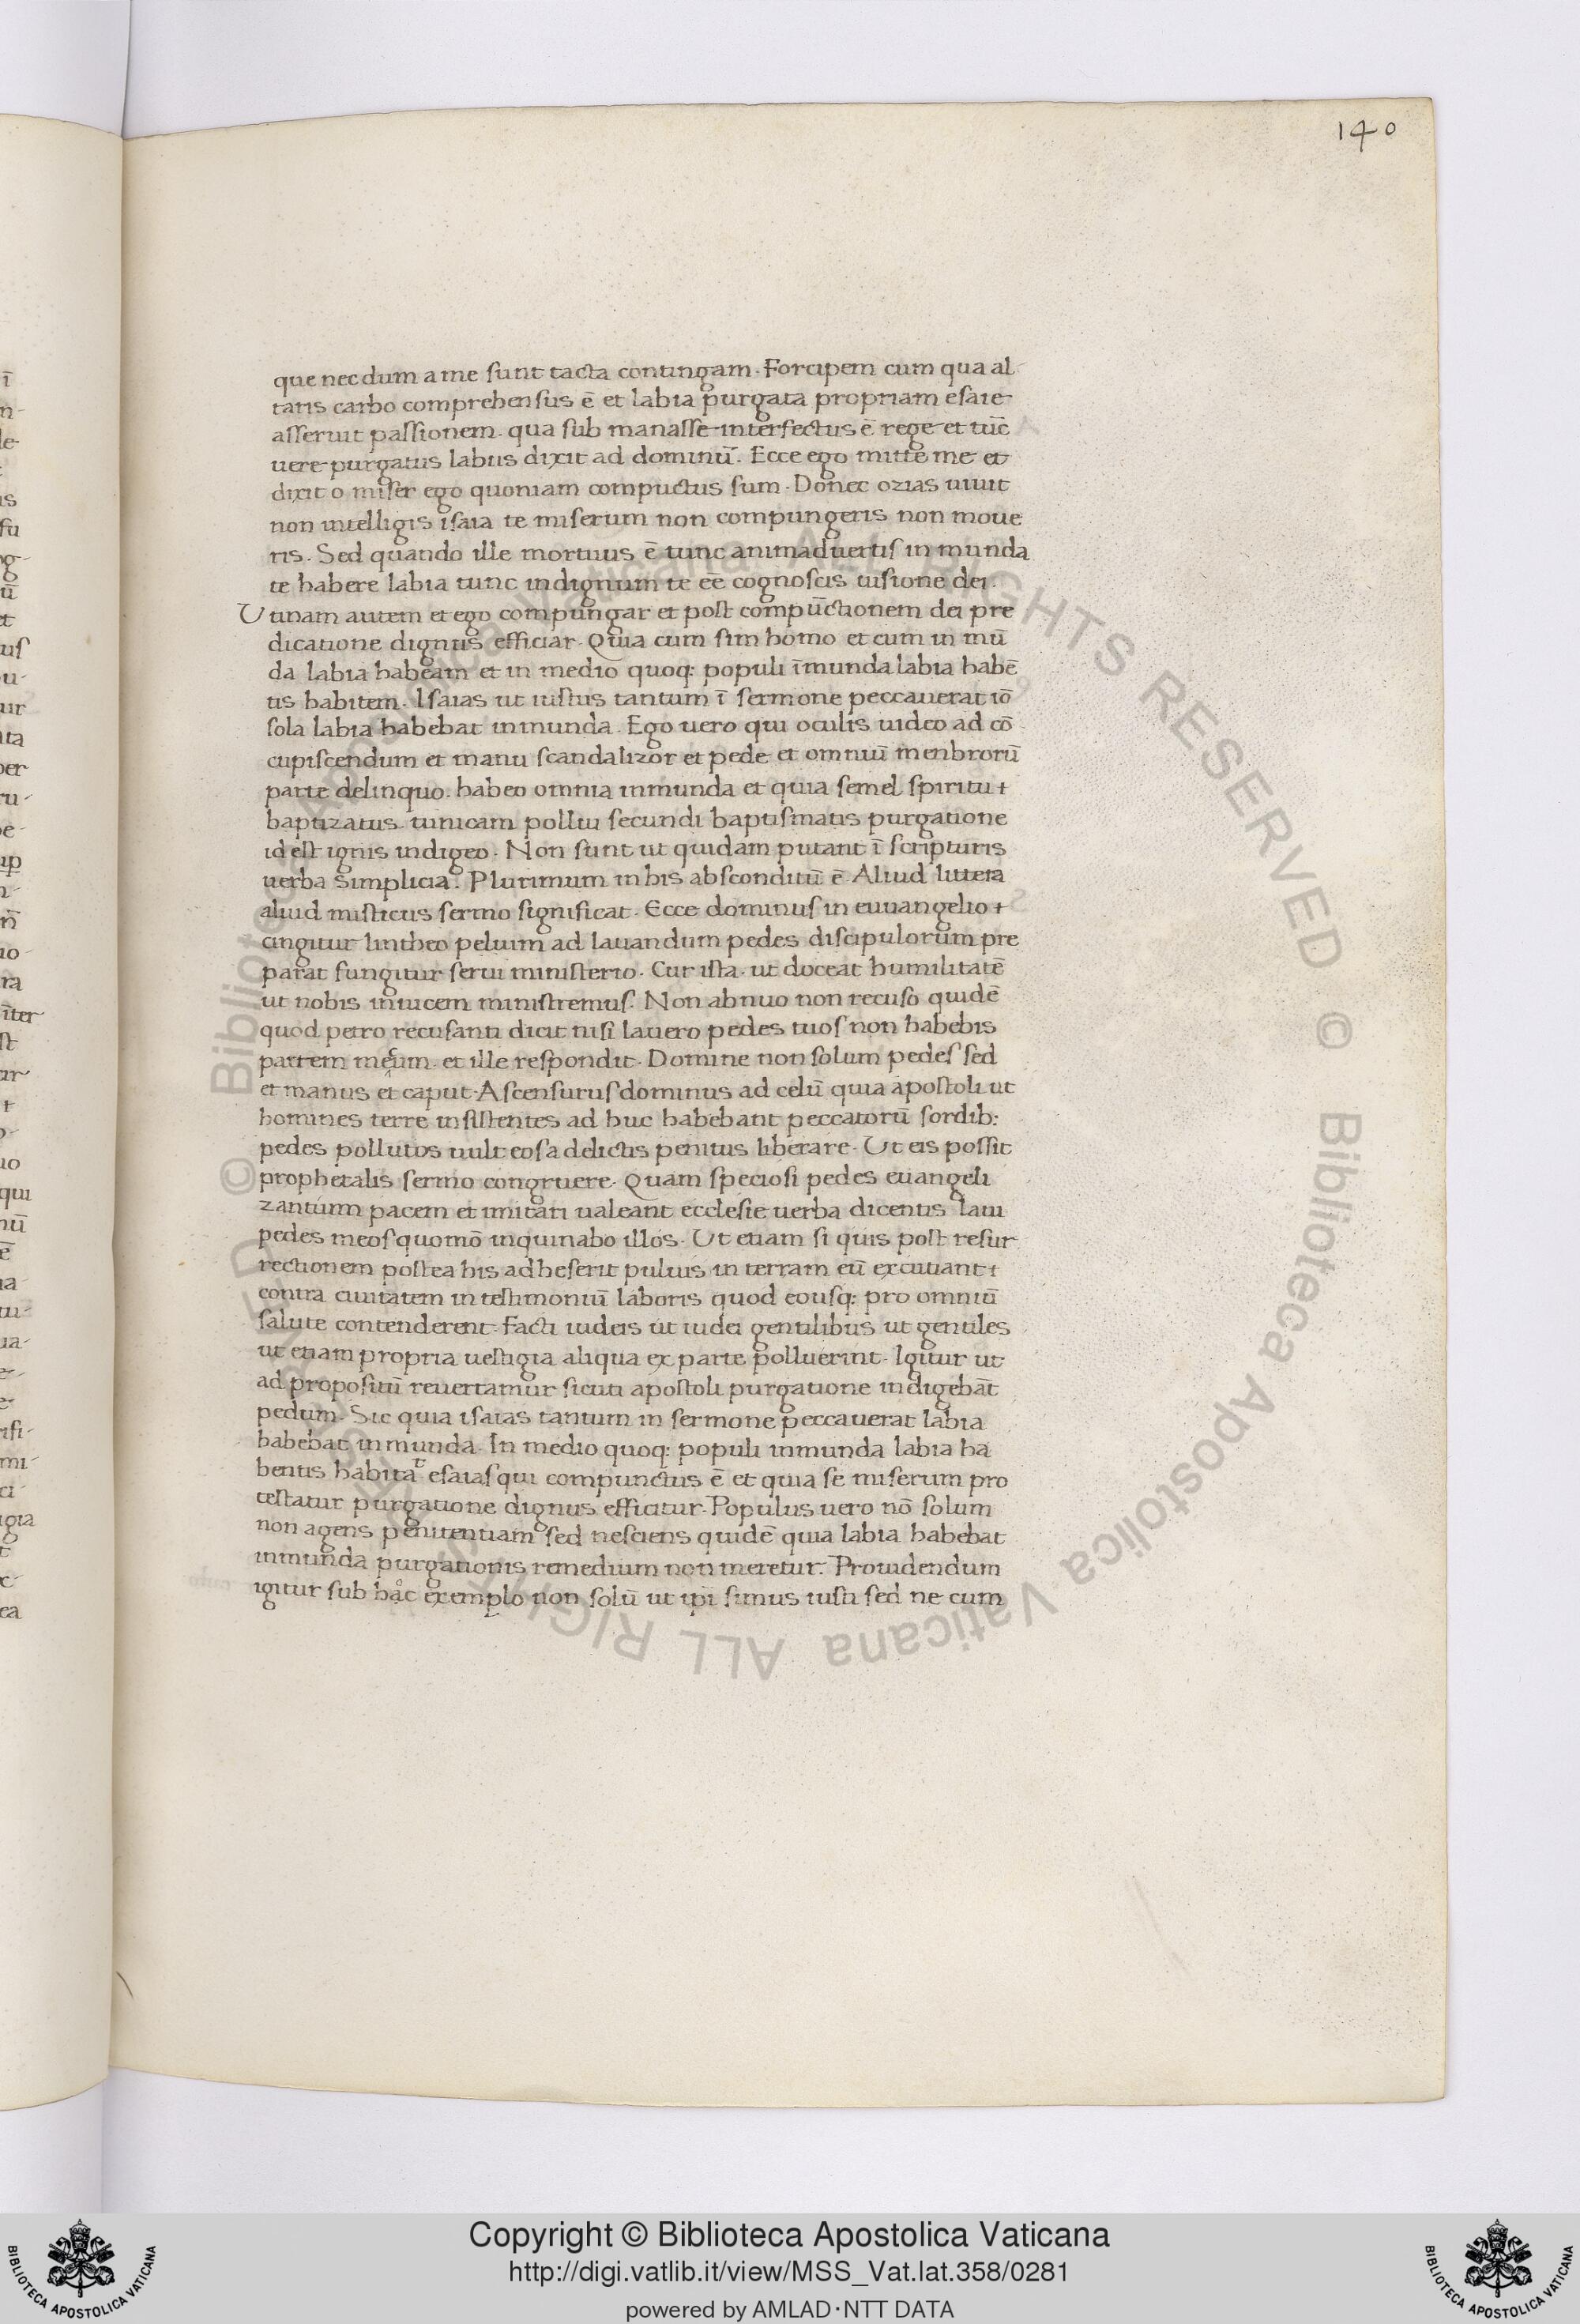 140
que nec dum a me sunt tacta contingam. Forcipem cum qua al
taris carbo comprehensus ē et labia purgata propriam esaie
asseruit passionem. qua sub manasse interfectus ē rege et tūc
uere purgatus labiis dixit ad dominū. Ecce ego mitte me et
dixit o miser ego quoniam compuctus sum. Donec ozias uiuit
non intelligis isaia te miserum non compungeris non moue
ris. Sed quando ille mortuus ē tunc animaduertis in munda
te habere labia tunc indignum te eē cognoscis uisione dei.
Utinam autem et ego compungar et post compūctionem dei pre
dicatione dignus efficiar. Quia cum sim homo et cum in mū
da labia habeam et in medio quoq: populi īmunda labia habē
tis habitem. Isaias ut iustus tantum ī sermone peccauerat iō
sola labia habebat inmunda. Ego uero qui oculis uideo ad cō
cupiscendum et manu scandalizor et pede et omniū menbrorū
parte delinquo. habeo omnia inmunda et quia semel spiritu
baptizatus tunicam pollui secundi baptismatis purgatione
id est ignis indigeo. Non sunt ut quidam putant ī scripturis
uerba simplicia. Plurimum in his absconditū ē. Aliud littera
aliud misticus sermo significat. Ecce dominus in euuangelio
cingitur lintheo peluim ad lauandum pedes discipulorum pre
parat fungitur serui ministerio. Cur ista. ut doceat humilitatē
ut nobis inuicem ministremus. Non abnuo non recuso quidē
quod petro recusanti dicit nisi lauero pedes tuos non habebis
partem mecum. et ille respondit. Domine non solum pedes sed
et manus et caput. Ascensurus dominus ad celū quia apostoli ut
homines terre insistentes ad huc habebant peccatorū sordib:
pedes pollutos uult eos a delictis penitus liberare. Ut eis possit
prophetalis sermo congruere. Quam speciosi pedes euangeli
zantium pacem et imitari ualeant ecclesie uerba dicentis laui
pedes meos quomō inquinabo illos. Ut etiam si quis post resur
rectionem postea his adheserit puluis in terram eū excutiant
contra ciuitatem in testimoniū laboris quod eousq: pro omniū
salute contenderent. Facti iudeis ut iudei gentilibus ut gentiles
ut etiam propria uestigia aliqua ex parte polluerint. Igitur ut
ad propositū reuertamur sicuti apostoli purgatione indigebāt
pedum. Sic quia isaias tantum in sermone peccauerat labia
habebat inmunda. In medio quoq: populi inmunda labia ha
bentis habitat esaias qui compunctus ē et quia se miserum pro
testatur purgatione dignus efficitur. Populus uero nō solum
non agens penitentiam sed nesciens quidē quia labia habebat
inmunda purgationis remedium non meretur. Prouidendum
igitur sub hac exemplo non solū ut ipi simus iusti sed ne cum
© Biblioteca Apostolica Vaticana ALL RIGHTS RESERVED © Biblioteca Apostolica Vaticana ALL RIGHTS RESERVED
Copyright © Biblioteca Apostolica Vaticana
http://digi.vatlib.it/view/MSS_Vat.lat.358/0281
powered by AMLAD·NTT DATA
BIBLIOTECA APOSTOLICA VATICANA
BIBLIOTECA APOSTOLICA VATICANA